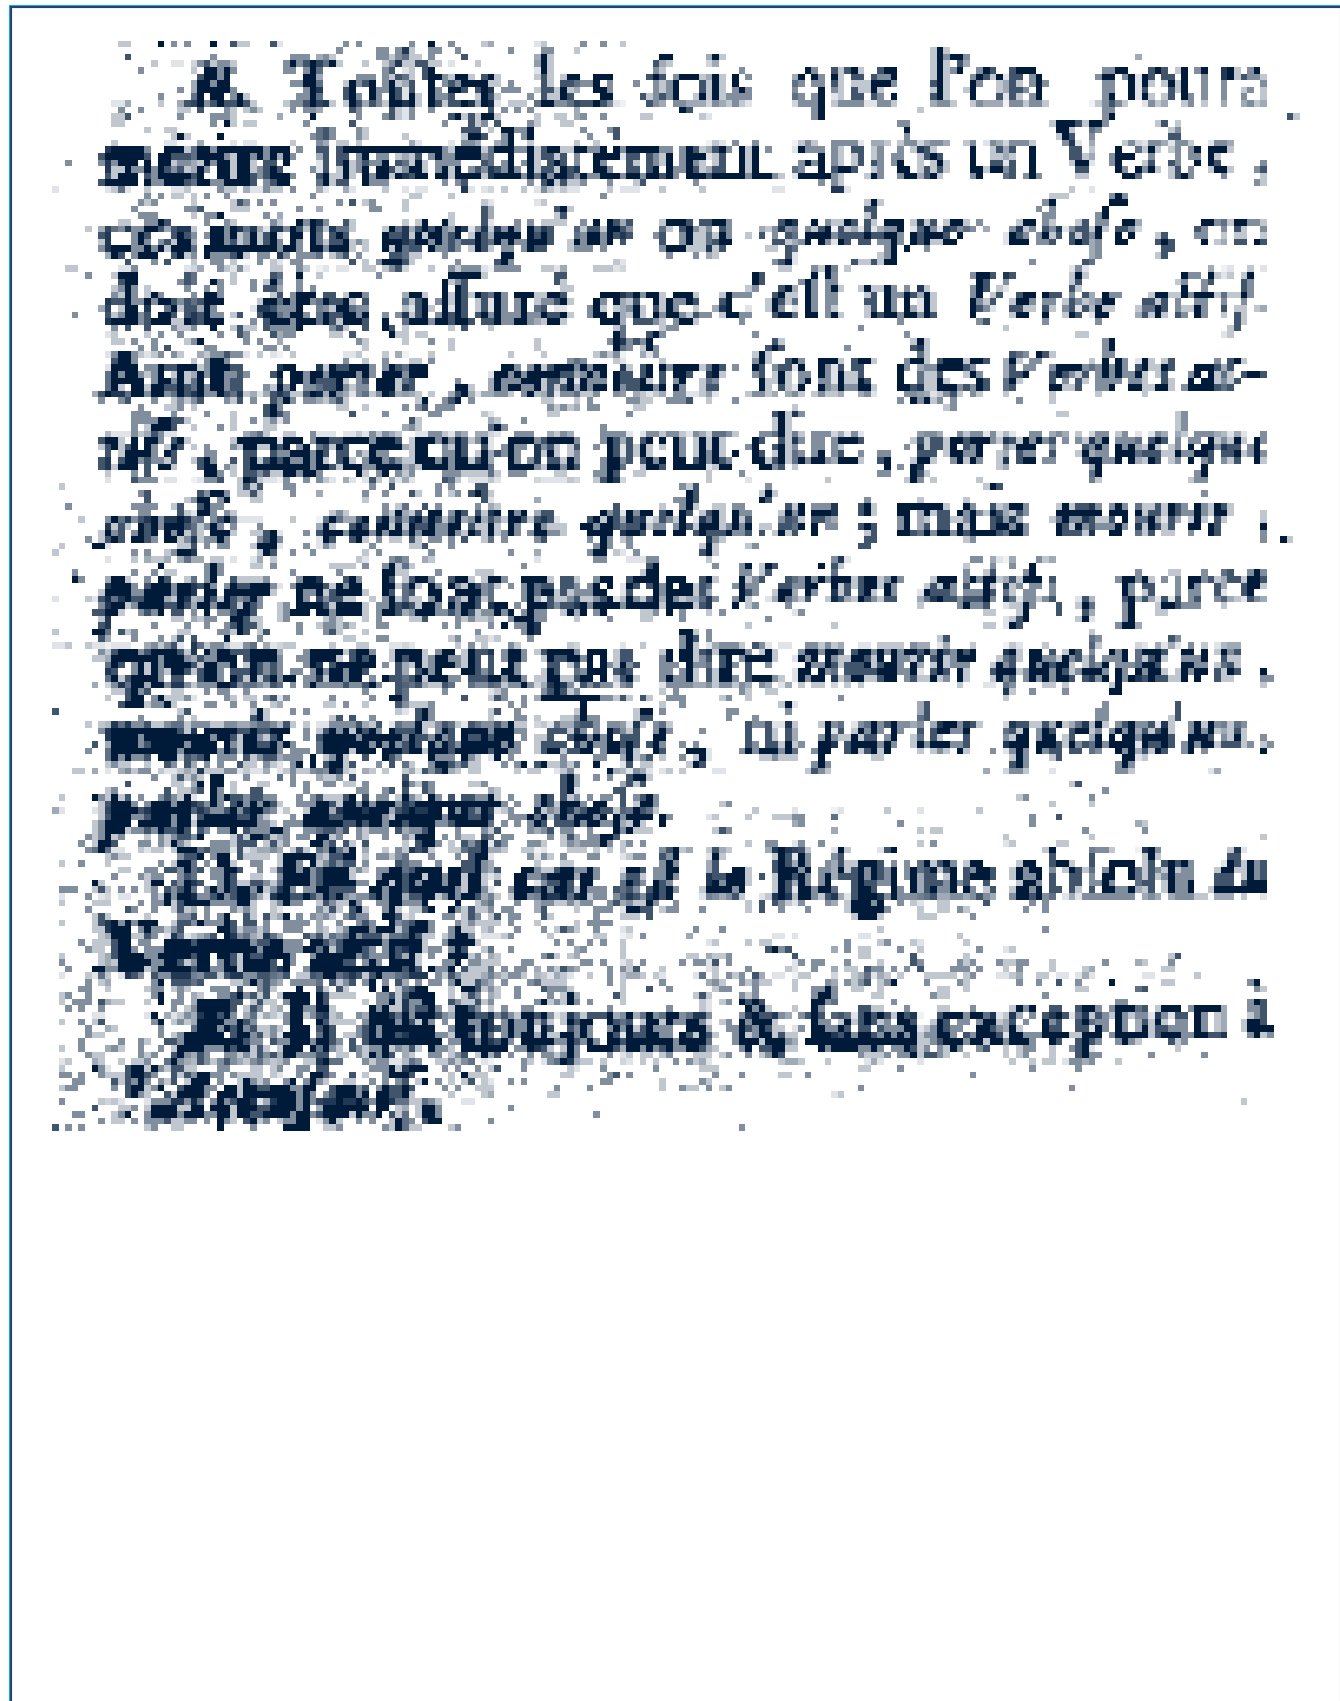 R. Toutes les fois que l'on poura
mettre immédiatement après un Verbe,
ces mots quelqu'un ou quelque chose, on
doit être assuré que c'est un Verbe actif.
Ainsi porter, connoitre sont des Verbes ac-
tifs, parce qu'on peut dire, porter quelque
chose, connoitre quelqu'un; mais mourir,
parler ne sont pas des Verbes actifs, parce
qu'on ne peut pas dire mourir quelqu'un,
mourir quelque chose, ni parler quelqu'un,
parler quelque chose.
D. En quel cas est le Régime absolu du
Verbe actif?
R. Il est toujours & sans exception à
l'Accusatif.